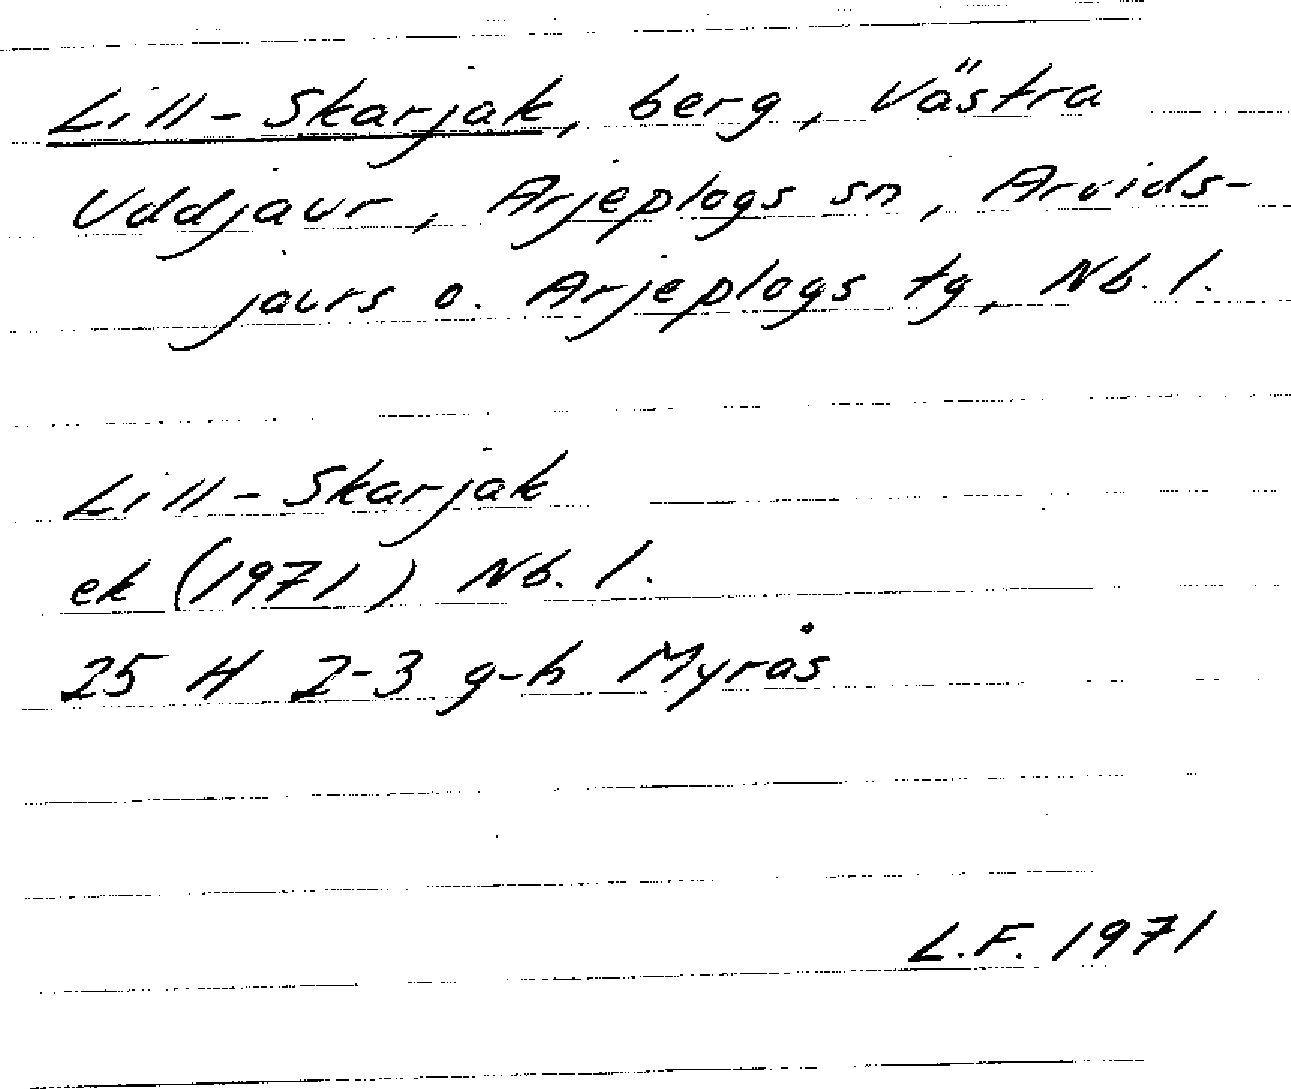 Lill-Skarjak, berg, Västra
Uddjaur, Arjeplogs sn, Arvids-
jaurs o. Arjeplogs tg, Nb. l.
Lill-Skarjak
ek (1971) Nb. l.
25 H 2-3 g-h Myrås
L.F. 1971